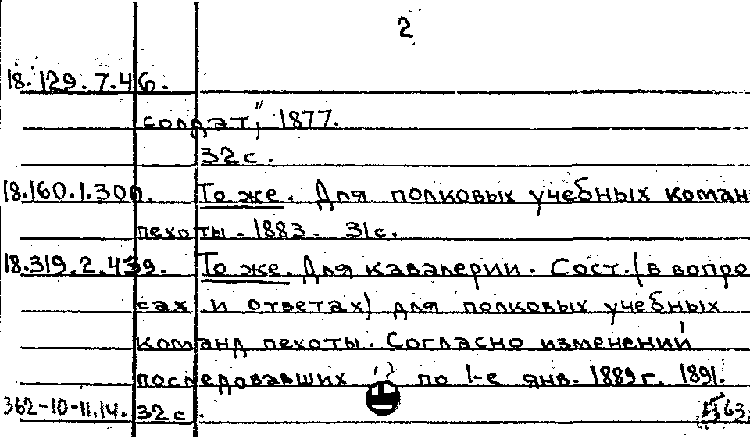 2
18.129.7.46.
солдат", 1877.
32с.
18.160.1.300. То же. Для полковых учебных коман
пехоты. 1883. 31с.
18.319.2.439. То же. Для кавалерии. Сост. (в вопро
сах и ответах) для полковых учебных
команд пехоты. Согласно изменений
последовавших по 1-е янв. 1889г. 1891.
362-10-11.14. 32с.